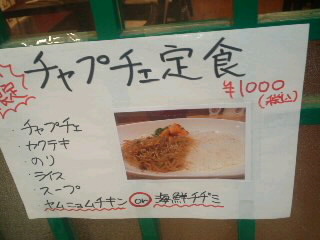 チャプチェ定食
¥1000
(税込)
・チャプチェ
・カクテキ
・のり
・ライス
・スープ
ヤムニョムチキン or 海鮮チヂミ